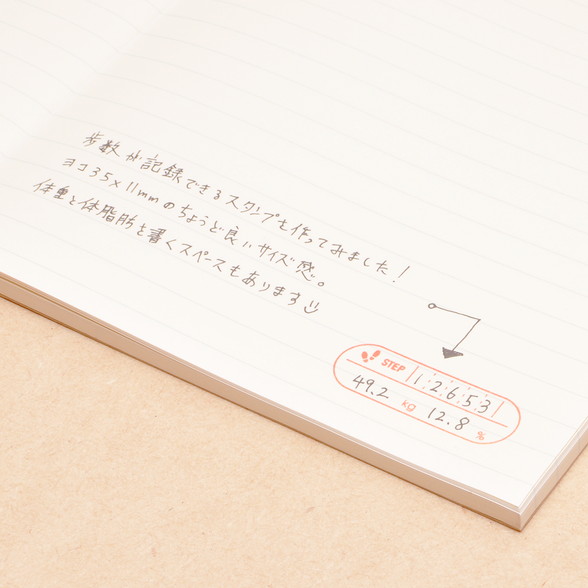 歩数が記録できるスタンプを作ってみました!
ヨコ35×11mmのちょうど良いサイズ感。
体重と体脂肪を書くスペースもあります
STEP 12653
49.2 kg 12.8 %